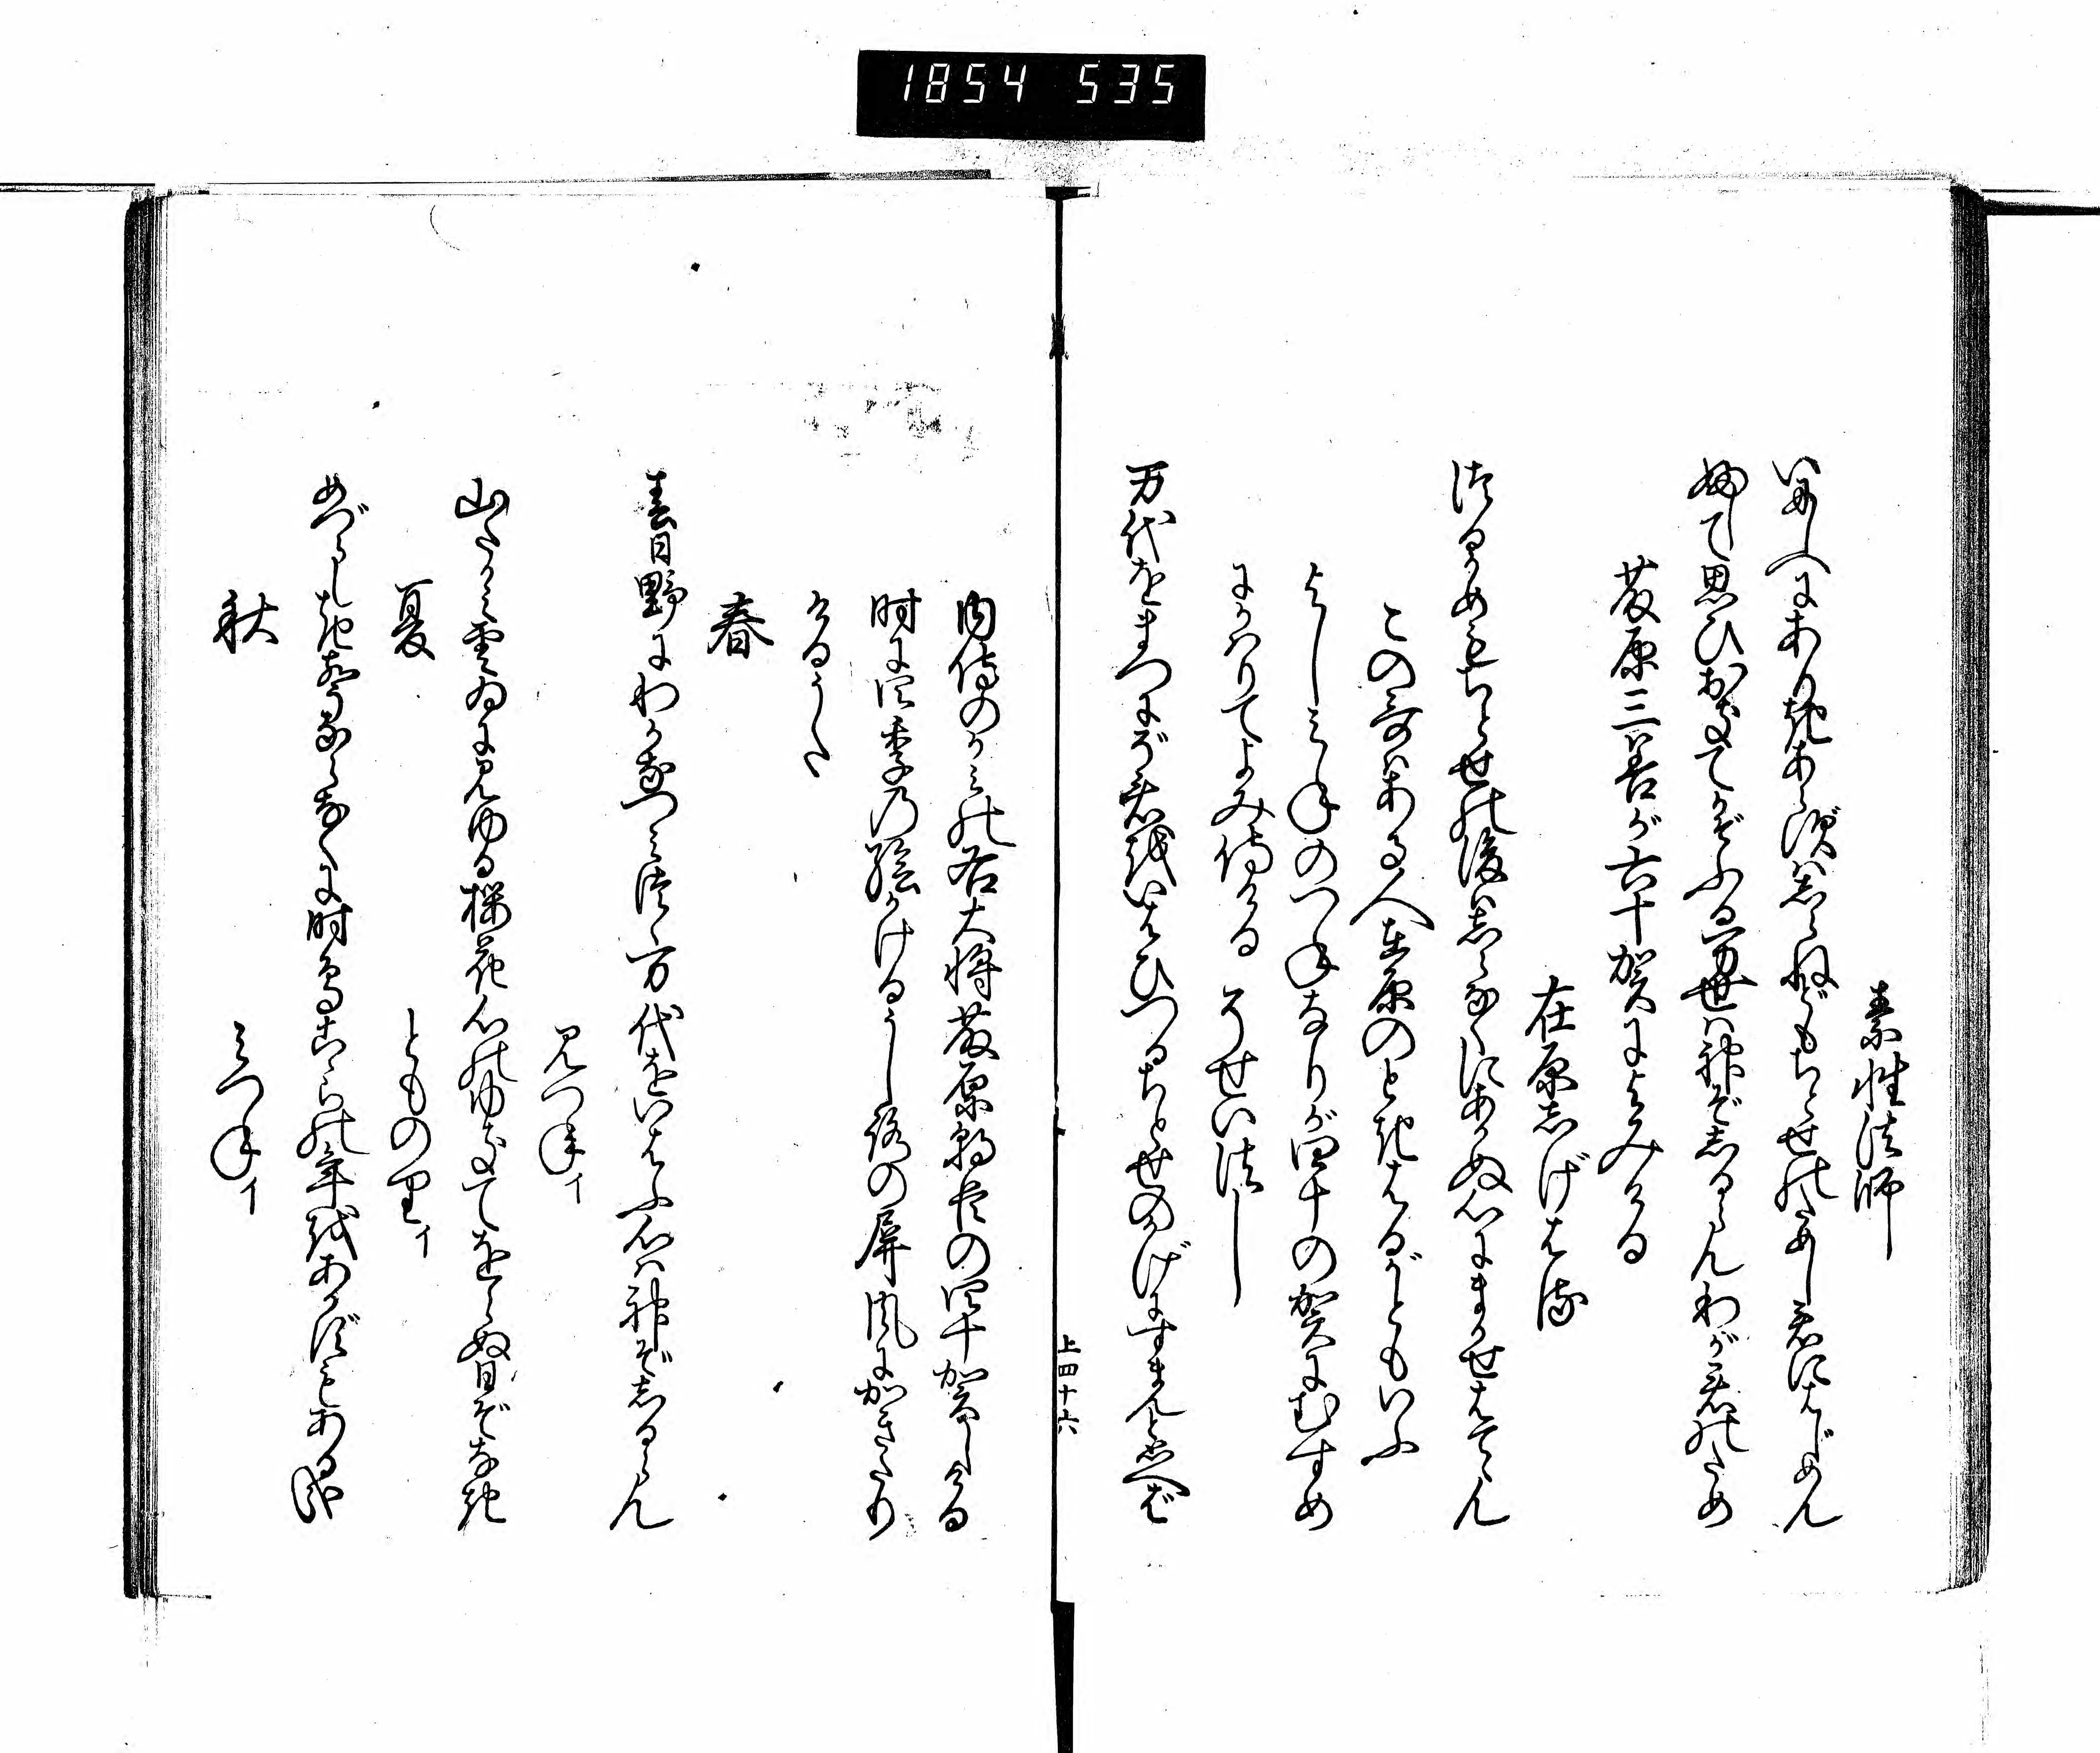 1854 535
素性法師
いにしへにありきあらずはしらねどもちとせのためし君にはじめん
ふして思ひおきてかぞふる万世は神ぞしるらんわが君のため
藤原三善が六十賀によみける
在原しげはる
つるかめもちとせの後はしらなくにあかぬ心にまかせはてゝん
この哥はある人在原のときはるがともいふ
よしみねのつねなりが四十の賀にむすめ
にかはりてよみ侍ける そせい法し
万代をまつにぞ君をいはひつるちとせのかげにすまんと思へば
上四十六
内侍のかみの右大将藤原朝臣の四十賀しける
時に四季の絵かけるうしろの屏風にかきたり
けるうた
春
春日野にわかなつみつゝ万代をいはふ心は神ぞしるらん
みつねイ
山たかみ雲ゐに見ゆる桜花心のゆきてをらぬ日ぞなき
夏
とものりイ
めづらしき声ならなくに時鳥こゝらの年をあかずもあるかな
秋
みつねイ